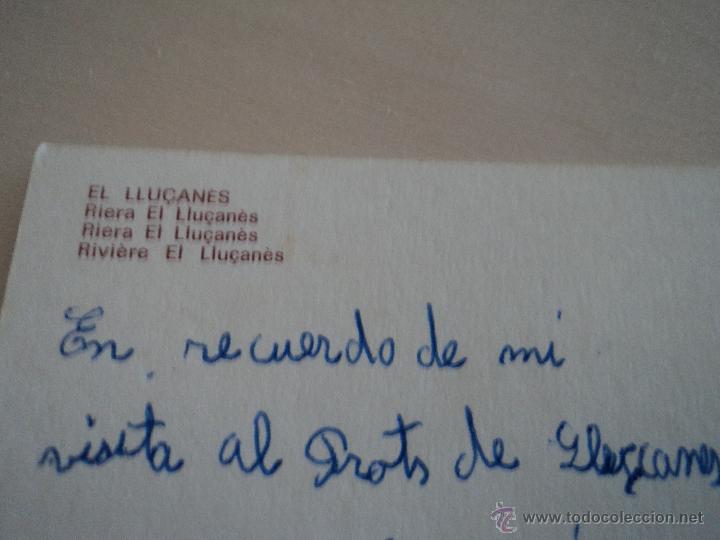 EL LLUÇANÈS
Riera El Lluçanès
Riera El Lluçanès
Rivière El Lluçanès
En recuerdo de mi
visita al Prats de Lluçanes
www.todocoleccion.net